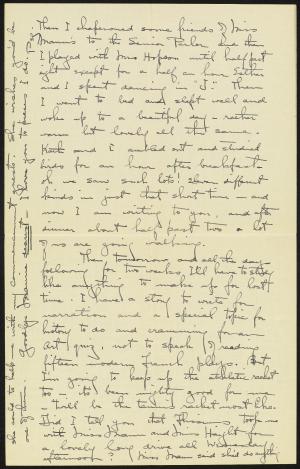 Then I chaperoned some friends of Miss
Mrann's to the Senior Parlor and then
I played with Miss Hopson until half past
eight except for a half an hour Esther
and I spent dancing in "J". Then
I went to bed and slept well and
woke up to a beautiful day - rather
warm but lovely all the same.
and I ambled out and studied
birds for an hour after breakfast.
Oh we saw such lots! eleven different
kinds in just that short time - and
now I am writing to you, and after
dinner about half past two a lot
of us are going walking.
Then tomorrow and all the days
following for two weeks, I'll have to study
like anything to make up for lost
time. I have a story to write for
narration and a special topic for
history to do and cramming for an
Art quiz, not to speak of reading
fifteen modern french plays. But
I'm going to keep up the athletic racket
too - it's been mighty good for me
- 'twill be the tennis racket most like.
Did I tell you that took me
with Miss Mann and Haight for
a lovely long drive all Wednesday
afternoon? Miss Mann said she'd do anything
she could to help me with Commencement guests. She wishes
out of town. Goodbye Dearie dearest I love you to pieces I do.